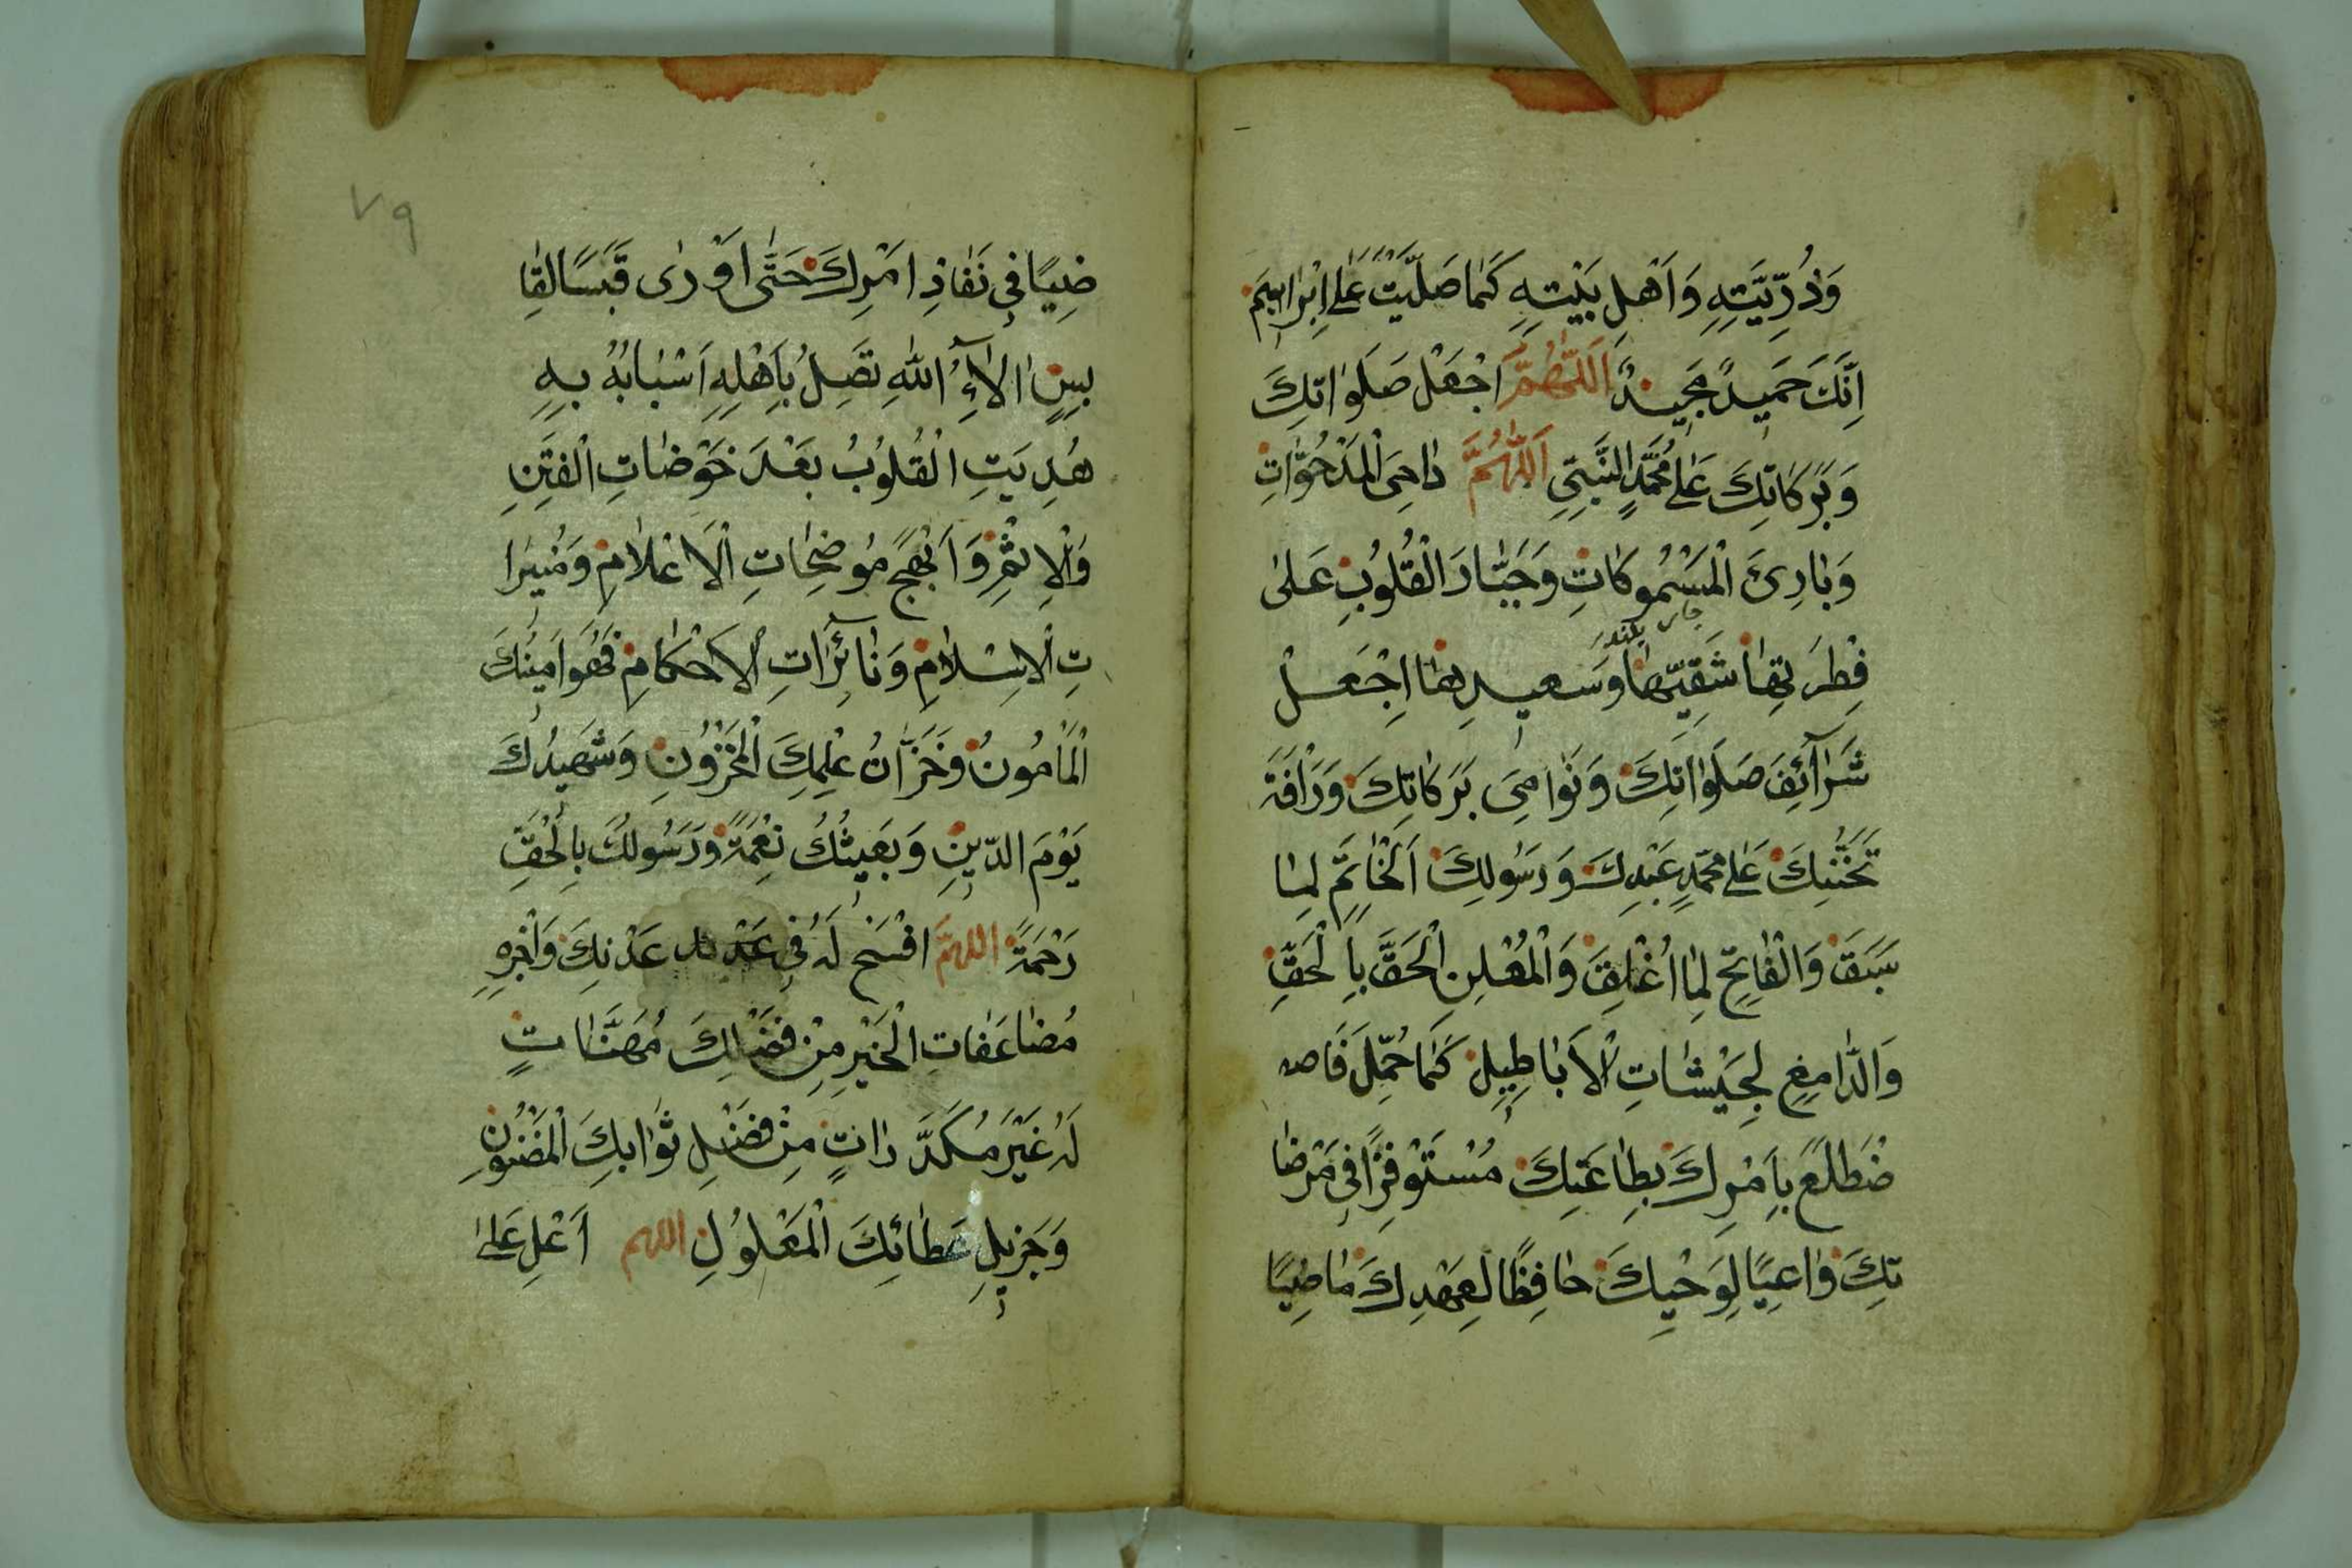 وَذُرِّيَّتِهِ وَاَهْلِ بَيْتِهِ كَمَا صَلَّيْتَ عَلٰى اِبْرَاهِيمَ
اِنَّكَ حَمِيدٌ مَجِيدٌ اَللّٰهُمَّ اجْعَلْ صَلَوَاتِكَ
وَبَرَكَاتِكَ عَلٰى مُحَمَّدٍ النَّبِيِّ اَللّٰهُمَّ دَاحِىَ الْمَدْحُوَّاتِ
وَبَارِئَ الْمَسْمُوكَاتِ وَجَبَّارَ الْقُلُوبِ عَلٰى
فِطْرَتِهَا شَقِيِّهَا وَسَعِيدِهَا اِجْعَلْ
شَرَآئِفَ صَلَوَاتِكَ وَنَوَامِىَ بَرَكَاتِكَ وَرَاْفَةَ
تَحَنُّنِكَ عَلٰى مُحَمَّدٍ عَبْدِكَ وَرَسُولِكَ اَلْخَاتِمِ لِمَا
سَبَقَ وَالْفَاتِحِ لِمَا اُغْلِقَ وَالْمُعْلِنِ الْحَقَّ بِالْحَقِّ
وَالدَّامِغِ لِجَيْشَاتِ الْاَبَاطِيلِ كَمَا حُمِّلَ فَاصْ
ضْطَلَعَ بِاَمْرِكَ بِطَاعَتِكَ مُسْتَوْفِزًا فِى مَرْضَا
تِكَ وَاعِيًا لِوَحْيِكَ حَافِظًا لِعَهْدِكَ مَاضِيًا
٧٩
ضِيًا فِى نَفَاذِ اَمْرِكَ حَتّٰى اَوْرٰى قَبَسًا لِقَا
بِسٍ اٰلَآءُ اللّٰهِ تَصِلُ بِاَهْلِهِ اَسْبَابُهُ بِهِ
هُدِيَتِ الْقُلُوبُ بَعْدَ خَوْضَاتِ الْفِتَنِ
وَالْاِثْمِ وَاَبْهَجَ مُوضِحَاتِ الْاَعْلَامِ وَمُنِيرَا
تِ الْاِسْلَامِ وَنَائِرَاتِ الْاَحْكَامِ فَهُوَ اَمِينُكَ
الْمَاْمُونُ وَخَزَّانُ عِلْمِكَ الْمَخْزُونِ وَشَهِيدُكَ
يَوْمَ الدِّينِ وَبَعِيثُكَ نِعْمَةً وَرَسُولُكَ بِالْحَقِّ
رَحْمَةً اللهمَّ افْسَحْ لَهُ فِى عَدْنِكَ وَاجْزِهِ
مُضَاعَفَاتِ الْخَيْرِ مِنْ فَضْلِكَ مُهَنَّاتٍ
لَهُ غَيْرَ مُكَدَّرَاتٍ مِنْ فَضْلِ ثَوَابِكَ الْمَضْنُونِ
وَجَزِيلِ عَطَائِكَ الْمَعْلُولِ اللهم اَعْلِ عَلٰى